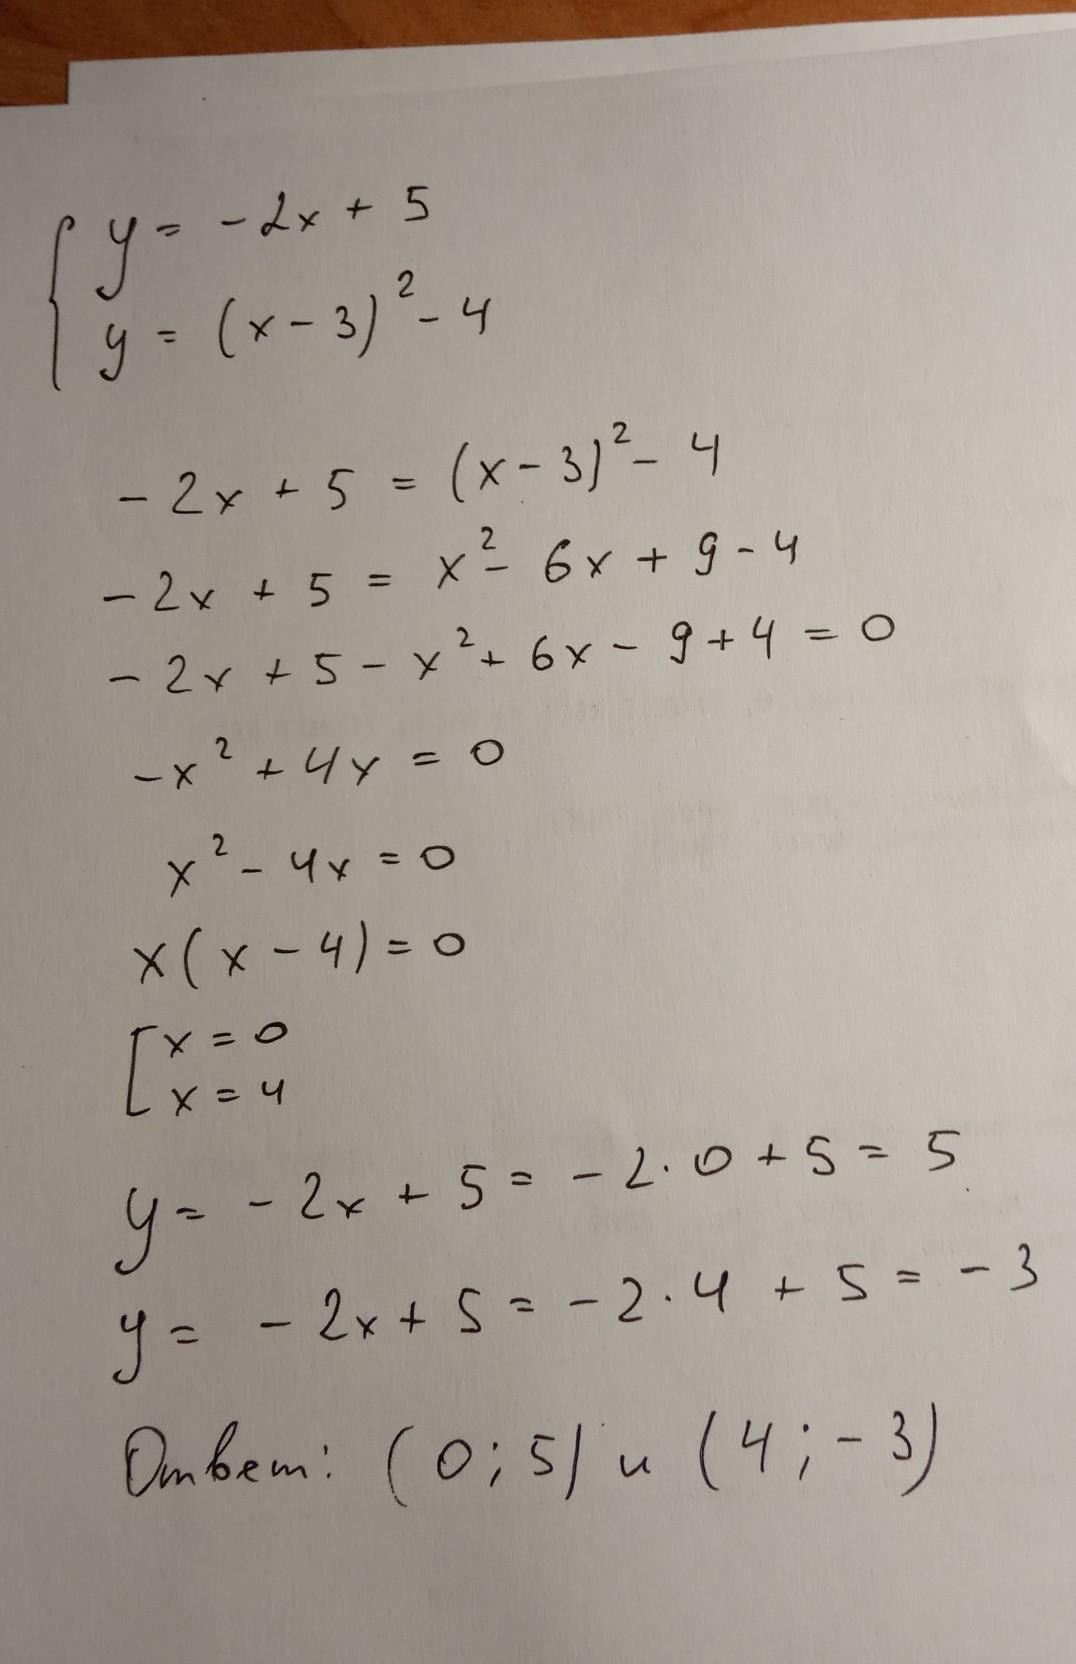 { y = -2x + 5
y = (x - 3)² - 4
- 2x + 5 = (x - 3)² - 4
- 2x + 5 = x² - 6x + 9 - 4
- 2x + 5 - x² + 6x - 9 + 4 = 0
-x² + 4x = 0
x² - 4x = 0
x(x - 4) = 0
[ x = 0
x = 4
y = - 2x + 5 = - 2 · 0 + 5 = 5
y = - 2x + 5 = - 2 · 4 + 5 = - 3
Ответ: (0; 5) и (4; - 3)